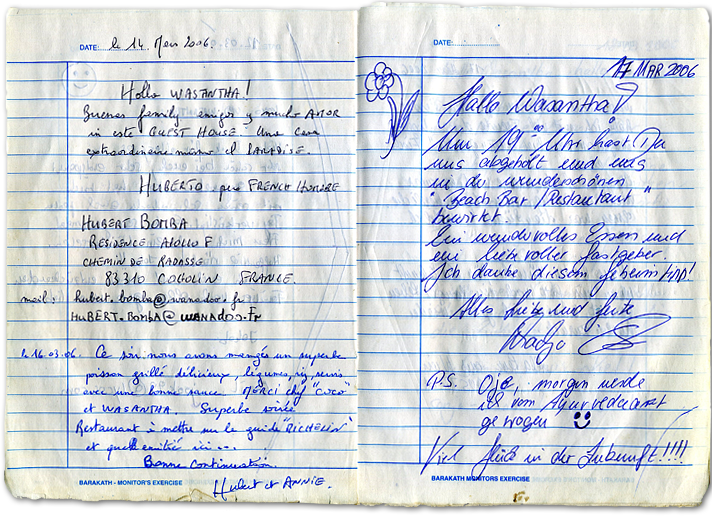 DATE: le 14. Mars 2006.
Hollo WASANTHA!
Buenas family amigos y mucho AMOR
in este GUEST HOUSE. Una casa
extraordinaire mismo el PARADISE.
HUBERTO pur FRENCH HOMBRE
HUBERT BOMBA
RESIDENCE APOLLO F
CHEMIN DE RADASSE
83310 COGOLIN FRANCE.
mail: hubert.bomba@wanadoo.fr
HUBERT.BOMBA@WANADOO.FR
le 16.03.06. Ce soir nous avons mangés un superbe
poisson grillé délicieux, légumes, riz, servis
avec une bonne sauce. MERCI chef "COCO"
et WASANTHA. Superbe soirée
Restaurant à mettre sur le guide "MICHELIN"
et quelle amitié ici...
Bonne continuation.
Hubert et ANNIE.
BARAKATH - MONITOR'S EXERCISE
DATE:
17 MAR 2006
Hallo Wasantha!
Um 19°° Uhr hast Du
uns abgeholt und uns
in der wunderschönen
"Beach Bar / Restaurant"
bewirtet.
Ein wundervolles Essen und
ein liebevoller Gastgeber.
Ich danke diesem Geheimtip!
Alles Liebe und Gute
P.S. Oje, morgen werde
ich vom Ayurvedaarzt
gewogen
Viel Glück in der Zukunft!!!!
BARAKATH MONITORS EXERCISE